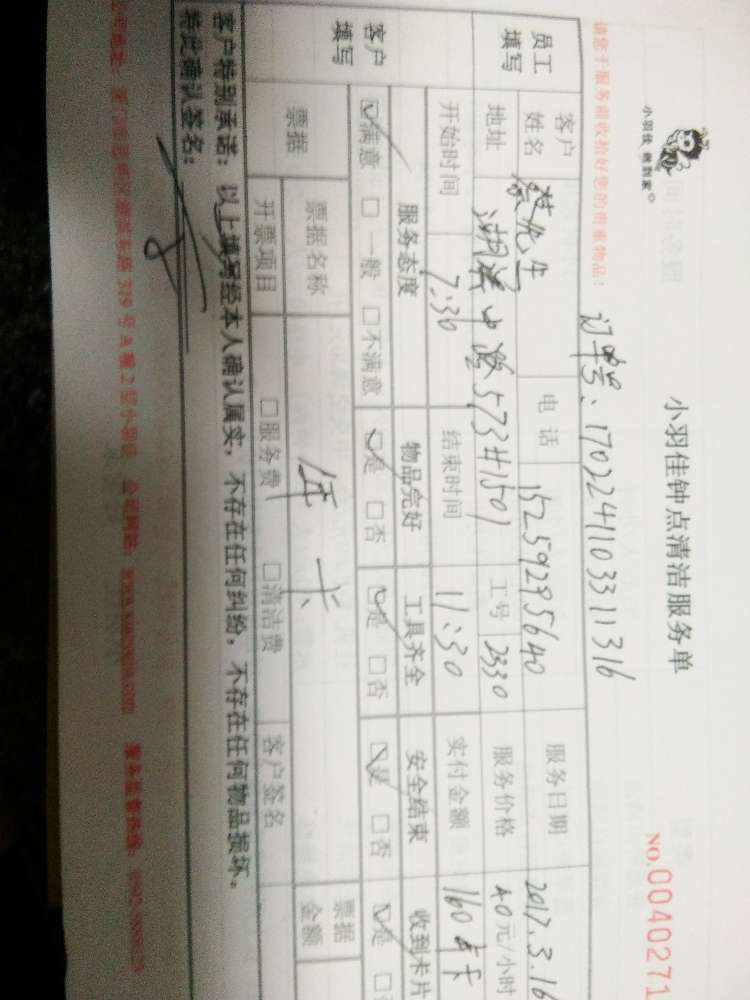 小羽佳 微到家
小羽佳钟点清洁服务单
NO.0040271
请您于服务前收拾好您的贵重物品！
订单号：1702241103311316
员工填写 客户姓名 蔡先生 电话 15259295640 服务日期 2017.3.16
地址 湖滨中路573#1501 工号 2330 服务价格 40元/小时
开始时间 7:30 结束时间 11:30 实付金额 160
客户填写 服务态度 物品完好 工具齐全 安全结束 收到卡片
☑满意 □一般 □不满意 ☑是 □否 ☑是 □否 ☑是 □否 ☑是
票据 票据名称 年卡 票据金额
开票项目 □服务费 □清洁费 客户签名
客户特别承诺：以上填写经本人确认属实，不存在任何纠纷，不存在任何物品损坏。
特此确认签名：
319号A幢2层小羽佳 公司网站：